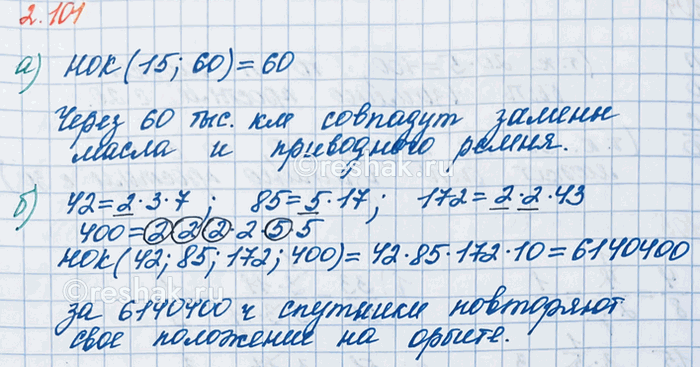 2.101
а) НОК(15; 60) = 60
Через 60 тыс. км совпадут замены
масла и приводного ремня.
reshak.ru
б) 42 = 2·3·7; 85 = 5·17; 172 = 2·2·43
400 = 2·2·2·2·5·5
НОК(42; 85; 172; 400) = 42·85·172·10 = 6140400
reshak.ru
за 6140400 ч спутники повторяют
свое положение на орбите.